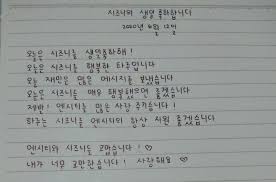 시즈니의 생일 축하합니다
2020년 6월 12일
오늘은 시즈니를 생일축하해!
오늘은 시즈니를 행복한 타톡입니다
오늘 재민은 많은 메시지를 보냈습니다
오늘은 시즈니를 매우 행복했으면 좋겠습니다
제발! 엔시티를 많은 사랑 주십습니다!
하루는 시즈니를 엔시티의 항상 지원 좋겠습니다
엔시티와 시즈니를 고맙습니다! ♡
내가 너무 고만한습니다! 사랑해요 ♡